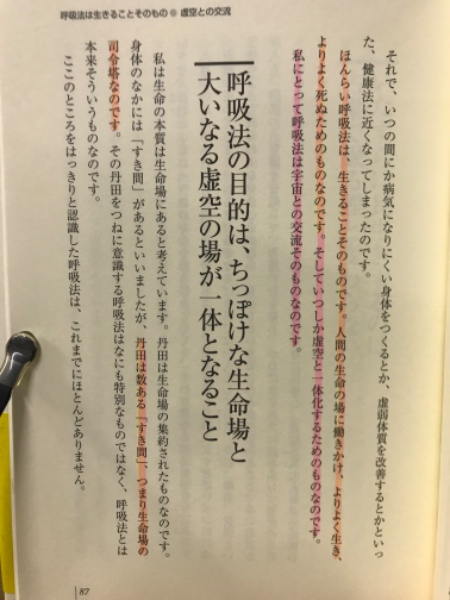 呼吸法は生きることそのもの●虚空との交流
それで、いつの間にか病気になりにくい身体をつくるとか、虚弱体質を改善するとかといっ
た、健康法に近くなってしまったのです。
ほんらい呼吸法は、生きることそのものです。人間の生命の場に働きかけ、よりよく生き、
よりよく死ぬためのものなのです。そしていつしか虚空と一体化するためのものなのです。
私にとって呼吸法は宇宙との交流そのものなのです。
呼吸法の目的は、ちっぽけな生命場と
大いなる虚空の場が一体となること
私は生命の本質は生命場にあると考えています。丹田は生命場の集約されたものなのです。
身体のなかには「すき間」があるといいましたが、丹田は数ある「すき間」、つまり生命場の
司令塔なのです。その丹田をつねに意識する呼吸法はなにも特別なものではなく、呼吸法とは
本来そういうものなのです。
ここのところをはっきりと認識した呼吸法は、これまでにほとんどありません。
87